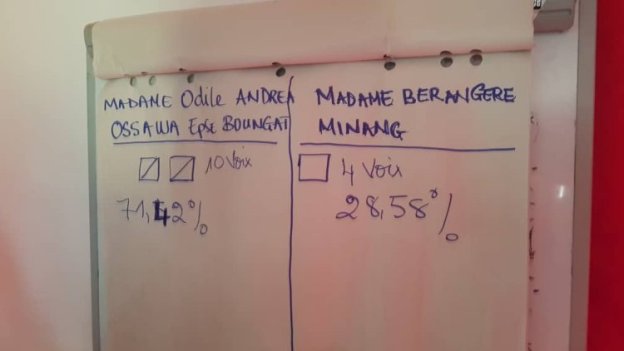 MADAME Odile ANDREA
OSSAWA Epse BOUNGAI
10 Voix
71,42%
MADAME BERANGERE
MINANG
4 Voix
28,58%